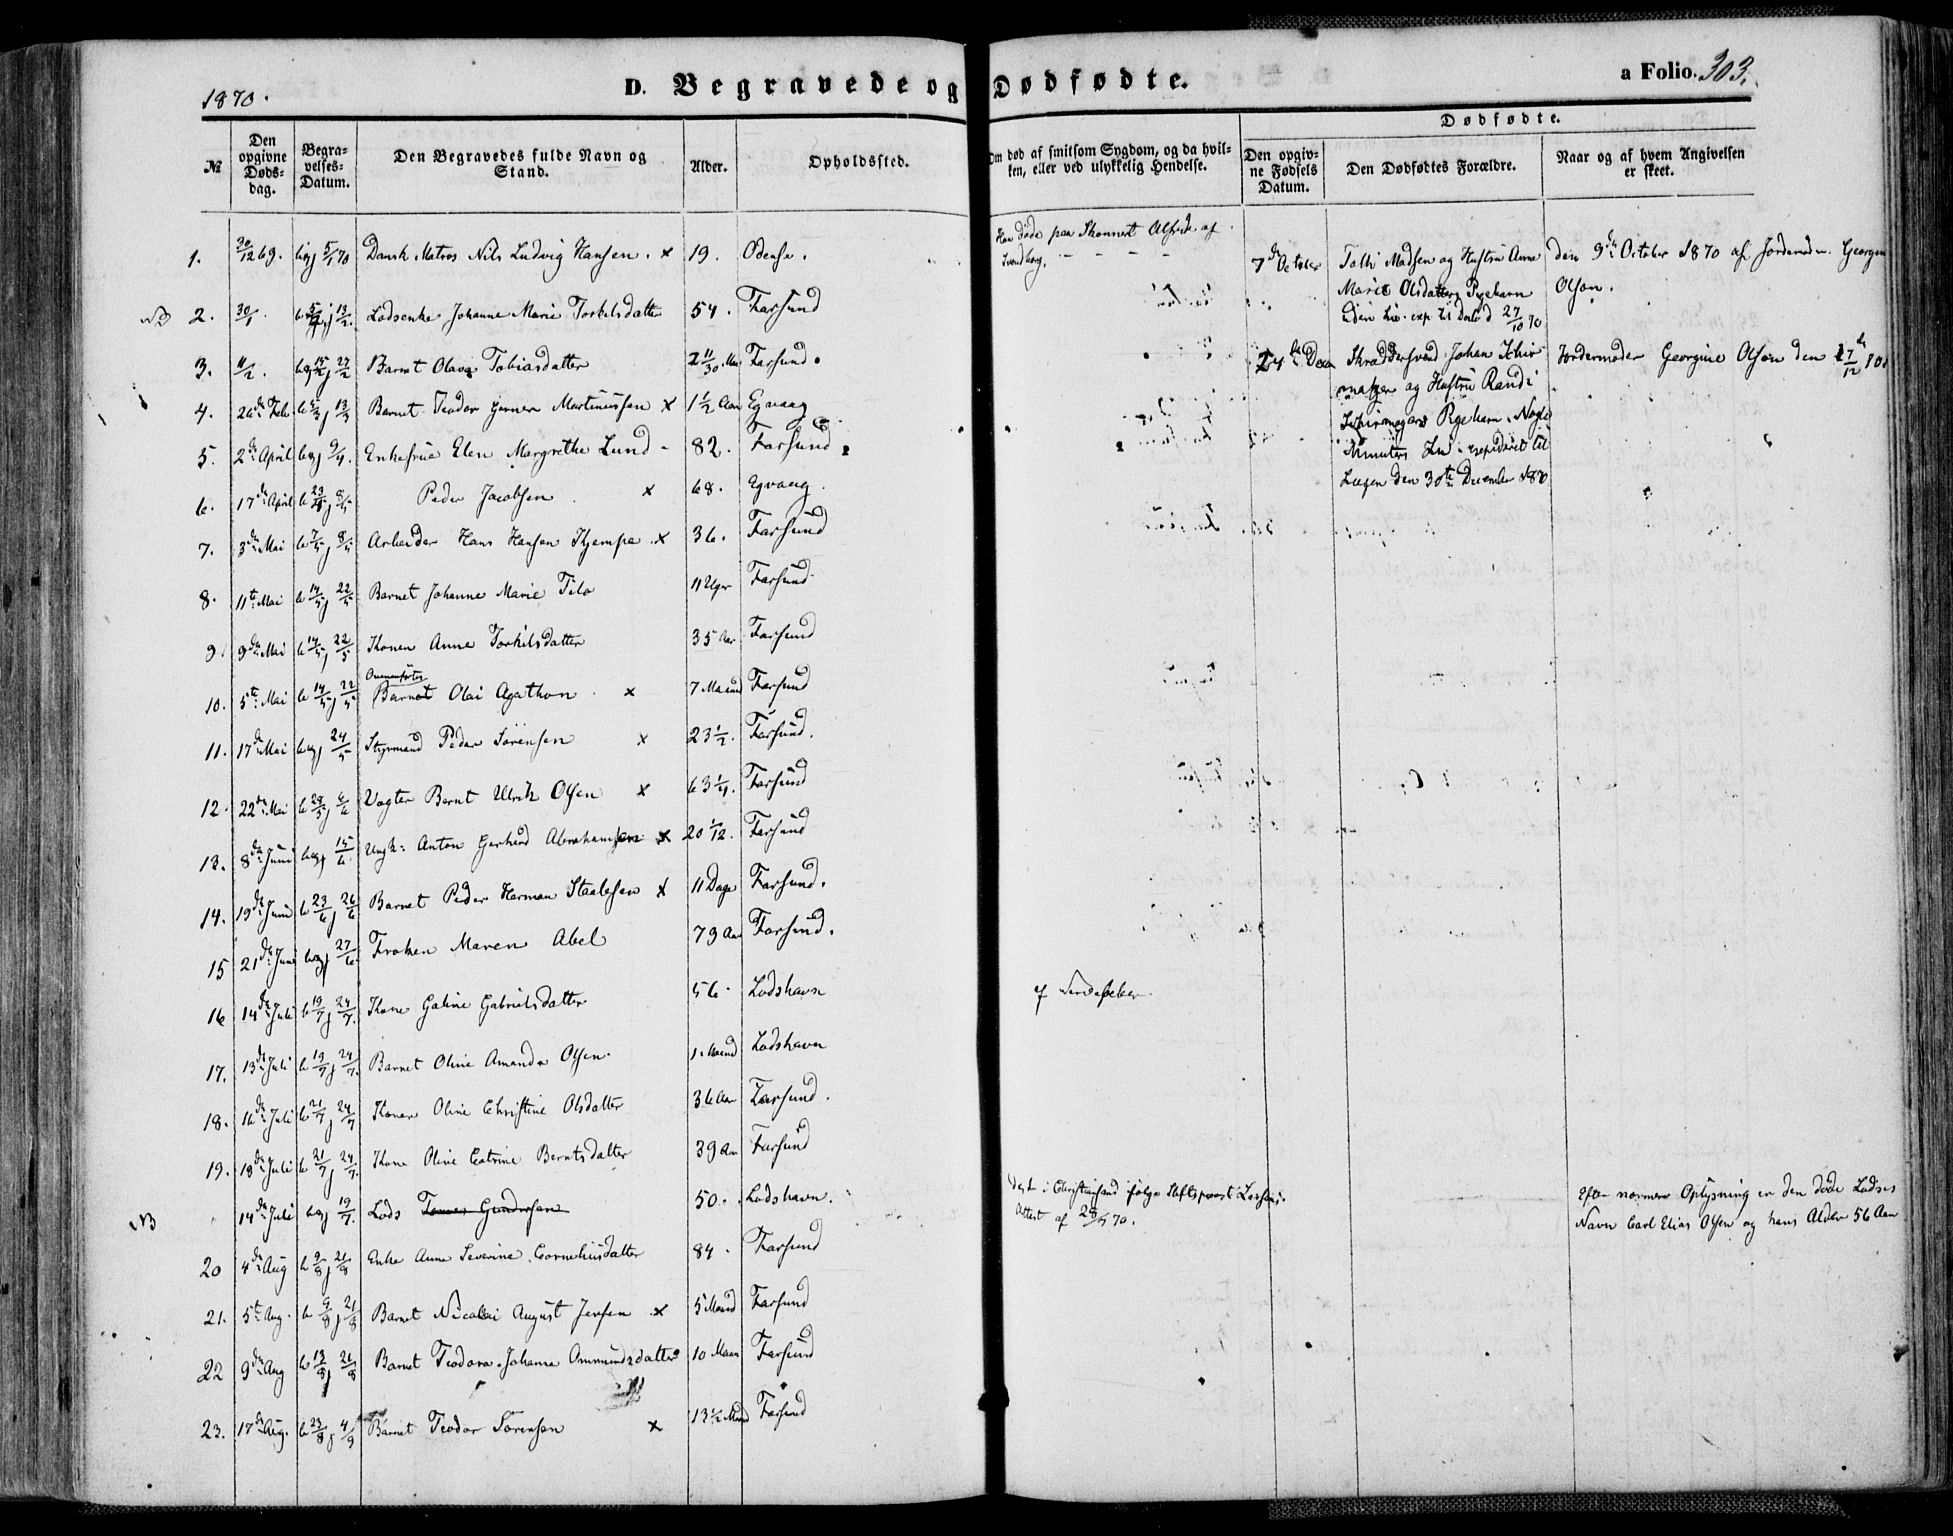 1870.
D. Begravede og Dødfødte.
a Folio. 303.
№
Den opgivne Døds-dag.
Begra-velses-Datum.
Den Begravedes fulde Navn og Stand.
Alder.
Opholdssted.
Om død af smitsom Sygdom, og da hvil-ken, eller ved ulykkelig Hendelse.
Dødfødte.
Den opgiv-ne Fødsels Datum.
Den Dødfødtes Forældre.
Naar og af hvem Angivelsen er skeet.
1. 30/12 69. beg 5/1 70 Dansk Matros Nils Ludvig Hansen. x 19. Odense.
Han døde paa Skonnert Alfred af
Svendborg.
NB 2. 30/1. Lodsenke Johanne Marie Torkilsdatter 54. Farsund
3. 11/2. b 15/2 j 27/2 Barnet Olava Tobiasdatter 2 11/30 Farsund.
4. b 5/3 j 13/3 Barnet Teodor Martinussen x 1 1/2 Aar Egvaag
5. 2den April beg 9/4. Enkefrue Elen Margrethe Lund - 82. Farsund
6. 17de April Peder Jacobsen x 68. Egvaag.
7. 3de Mai b 7/5 j 8/5 Arbeider Hans Hansen Kjempe. x 36. Farsund
8. 11te Mai b 14/5 j 22/5 Barnet Johanne Marie Tilo 11 Uger Farsund
9. 9de Mai b 14/5 j 22/5 Konen Anne Torkilsdatter 35 Aar Farsund
10. 5te Mai b 14/5 j 22/5 Barnet Olai Agathon x 7 Maaned Farsund
11. 17de Mai beg 24/5 Styrmand Peder Sørensen x 23 1/2. Farsund.
12. 22de Mai b 29/5 j 6/6 Vagter Bernt Ulrik Olsen x 63 1/4. Farsund
13. 8de Juni beg 15/6 Ungk: Anton Gerhard Abrahamsen x 20 1/12. Farsund
14. 19de Juni b 23/6 j 26/6 Barnet Peder Herman Staalesen x 11 Dage Farsund.
15 21de Juni beg 27/6 Frøken Maren Abel 79 Aar Farsund.
16 14de Juli b 19/7 j 24/7. Kone Galine Gabrielsdatter 56. Lodshavn
af Nervefeber
17. 13de Juli b 19/7 j 24/7. Barnet Oline Amanda Olsen. 1 Maaned Lodshavn
18. 16de Juli b 21/7 j 24/7 Konen Oline Christine Olsdatter 36 Aar Farsund.
19. 18de Juli b 21/7 j 24/7. Kone Oline Catrine Berntsdatter 39 Aar Farsund
NB " 14de Juli beg 19/7. Lods Tønnes Gundersen 50. Lodshavn.
Døde i Christiansand ifølge Stiftsprovst
Attest af 28/7 70.
Efter nærmere Oplysning er den døde Lodses
Navn Carl Elias Olsen og hans Alder 56 Aar
20 4de Aug b 9/8 j 21/8 Enke Anne Severine Corneliusdatter 84. Farsund
21. 5te Aug. b 9/8 j 21/8 Barnet Nicolai August Jensen x 5 Maaned Farsund
22 9de Aug b 13/8 j 21/8 Barnet Teodora Johanne Ommundsdatter 10 Maan Farsund
23. 17de Aug. b 23/8 j 4/9 Barnet Teodor Sørensen x 13 1/2 Maaned Farsund
7de October
Tolli Madsen og Hustru Anne
Marie Olsdatter
27/10 70
den 9de October 1870 af Jordemoder Georgine
Olson.
Skræddersvend Johan Schir-
mager og Hustru Randi
Schirmagers
expederet til
Lægen den 30te December 1870
Jordemoder Georgine Olson den 27/12